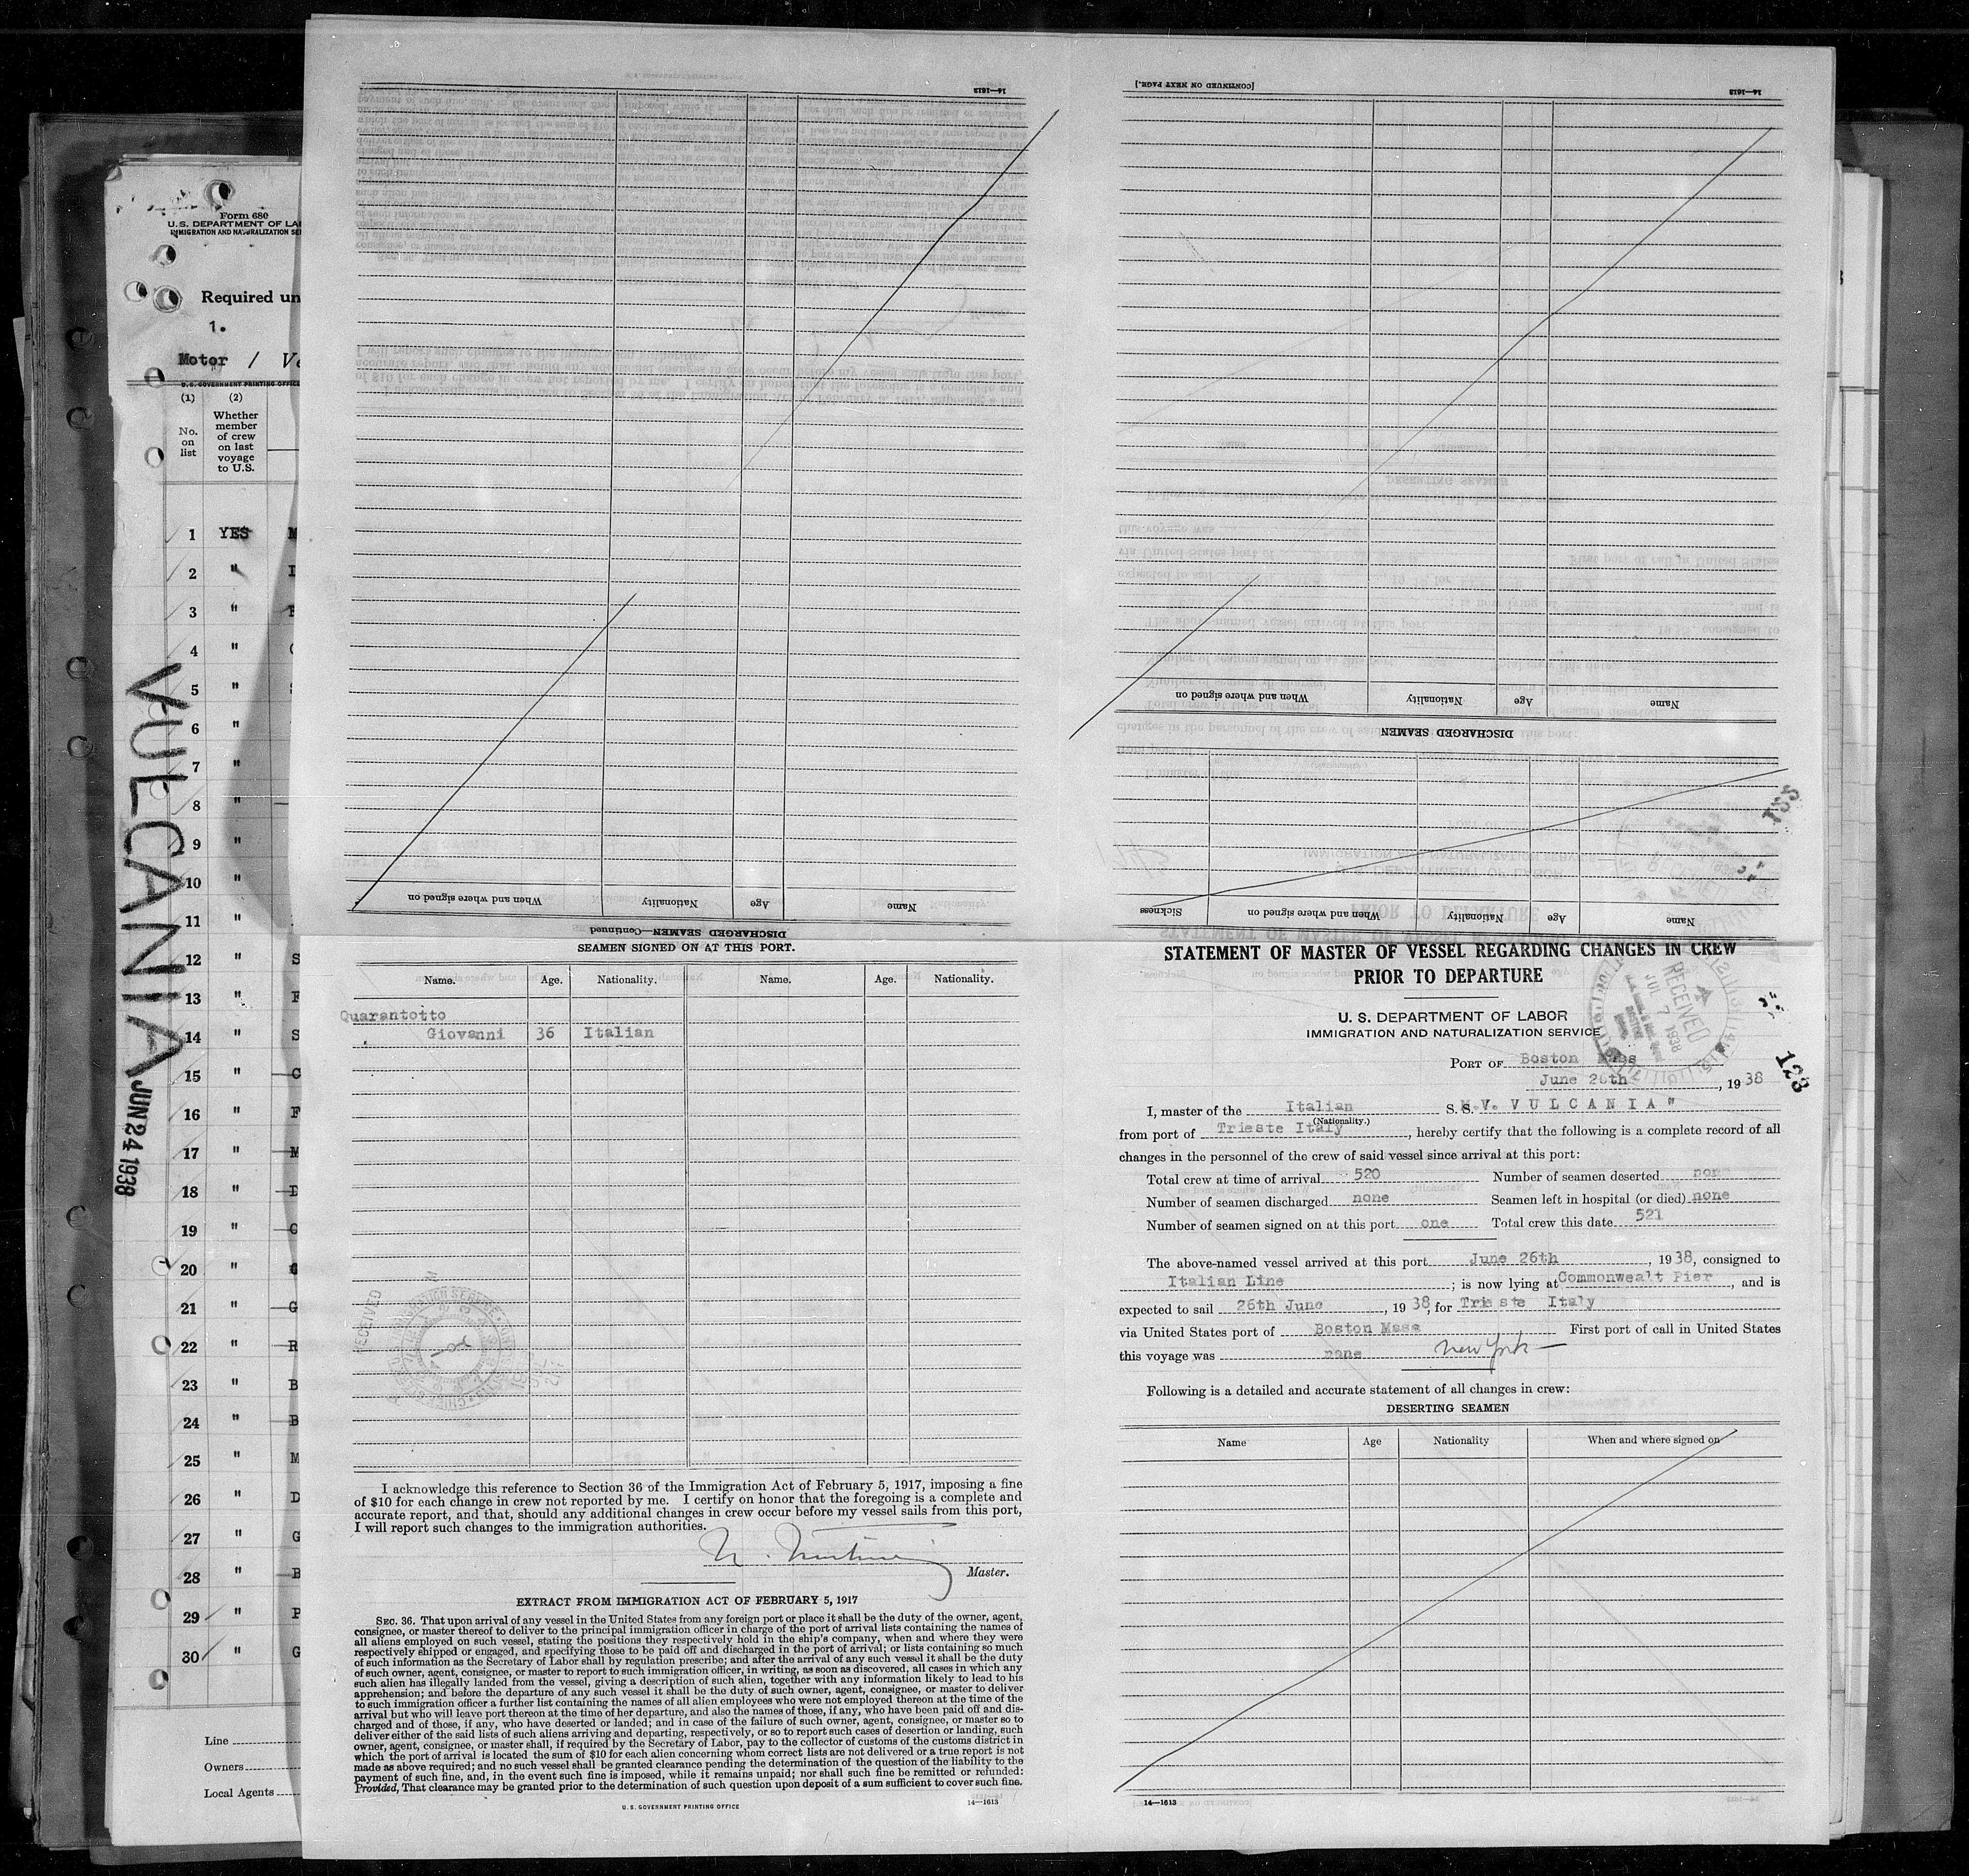 Form 680
U. S. DEPARTMENT OF LA
IMMIGRATION AND NATURALIZATION SE
Required un
1.
Motor / Ve
U.S. GOVERNMENT PRINTING OFFICE
(1) (2)
No. on list
Whether member of crew on last voyage to U.S.
1 YES M
2 "
3 "
4 "
5 "
6 "
7 "
8 "
9 "
10 "
11 "
12 " S
13 " F
14 " S
15 " C
16 " F
17 " M
18 " D
19 " C
20 "
21 " G
22 " R
23 " B
24 " B
25 " M
26 " D
27 " G
28 " B
29 " P
30 " G
Line
Owners
Local Agents
VULCANIA
JUN 24 1938
14—1613
DISCHARGED SEAMEN—Continued
Name Age Nationality When and where signed on
[CONTINUED ON NEXT PAGE.]
14—1613
DISCHARGED SEAMEN
Name Age Nationality When and where signed on
Name Age Nationality When and where signed on Sickness
SEAMEN SIGNED ON AT THIS PORT.
Name. Age. Nationality. Name. Age. Nationality.
Quarantotto
Giovanni 36 Italian
RECEIVED
I acknowledge this reference to Section 36 of the Immigration Act of February 5, 1917, imposing a fine
of $10 for each change in crew not reported by me. I certify on honor that the foregoing is a complete and
accurate report, and that, should any additional changes in crew occur before my vessel sails from this port,
I will report such changes to the immigration authorities.
Master.
EXTRACT FROM IMMIGRATION ACT OF FEBRUARY 5, 1917
SEC. 36. That upon arrival of any vessel in the United States from any foreign port or place it shall be the duty of the owner, agent,
consignee, or master thereof to deliver to the principal immigration officer in charge of the port of arrival lists containing the names of
all aliens employed on such vessel, stating the positions they respectively hold in the ship's company, when and where they were
respectively shipped or engaged, and specifying those to be paid off and discharged in the port of arrival; or lists containing so much
of such information as the Secretary of Labor shall by regulation prescribe; and after the arrival of any such vessel it shall be the duty
of such owner, agent, consignee, or master to report to such immigration officer, in writing, as soon as discovered, all cases in which any
such alien has illegally landed from the vessel, giving a description of such alien, together with any information likely to lead to his
apprehension; and before the departure of any such vessel it shall be the duty of such owner, agent, consignee, or master to deliver
to such immigration officer a further list containing the names of all alien employees who were not employed thereon at the time of the
arrival but who will leave port thereon at the time of her departure, and also the names of those, if any, who have been paid off and dis-
charged and of those, if any, who have deserted or landed; and in case of the failure of such owner, agent, consignee, or master so to
deliver either of the said lists of such aliens arriving and departing, respectively, or so to report such cases of desertion or landing, such
owner, agent, consignee, or master shall, if required by the Secretary of Labor, pay to the collector of customs of the customs district in
which the port of arrival is located the sum of $10 for each alien concerning whom correct lists are not delivered or a true report is not
made as above required; and no such vessel shall be granted clearance pending the determination of the question of the liability to the
payment of such fine, and, in the event such fine is imposed, while it remains unpaid; nor shall such fine be remitted or refunded:
Provided, That clearance may be granted prior to the determination of such question upon deposit of a sum sufficient to cover such fine.
U. S. GOVERNMENT PRINTING OFFICE 14—1613
STATEMENT OF MASTER OF VESSEL REGARDING CHANGES IN CREW
PRIOR TO DEPARTURE
U. S. DEPARTMENT OF LABOR
IMMIGRATION AND NATURALIZATION SERVICE
RECEIVED
JUL 7 1938
PORT OF Boston Mass
June 26th, 1938
123
I, master of the Italian S. S. M.V. VULCANIA"
(Nationality.)
from port of Trieste Italy, hereby certify that the following is a complete record of all
changes in the personnel of the crew of said vessel since arrival at this port:
Total crew at time of arrival 520 Number of seamen deserted none
Number of seamen discharged none Seamen left in hospital (or died) none
Number of seamen signed on at this port one Total crew this date 521
The above-named vessel arrived at this port June 26th, 1938, consigned to
Italian Line; is now lying at Commonwealt Pier, and is
expected to sail 26th June, 1938, for Trieste Italy
via United States port of Boston Mass First port of call in United States
this voyage was none New York
Following is a detailed and accurate statement of all changes in crew:
DESERTING SEAMEN
Name Age Nationality When and where signed on
14—1613